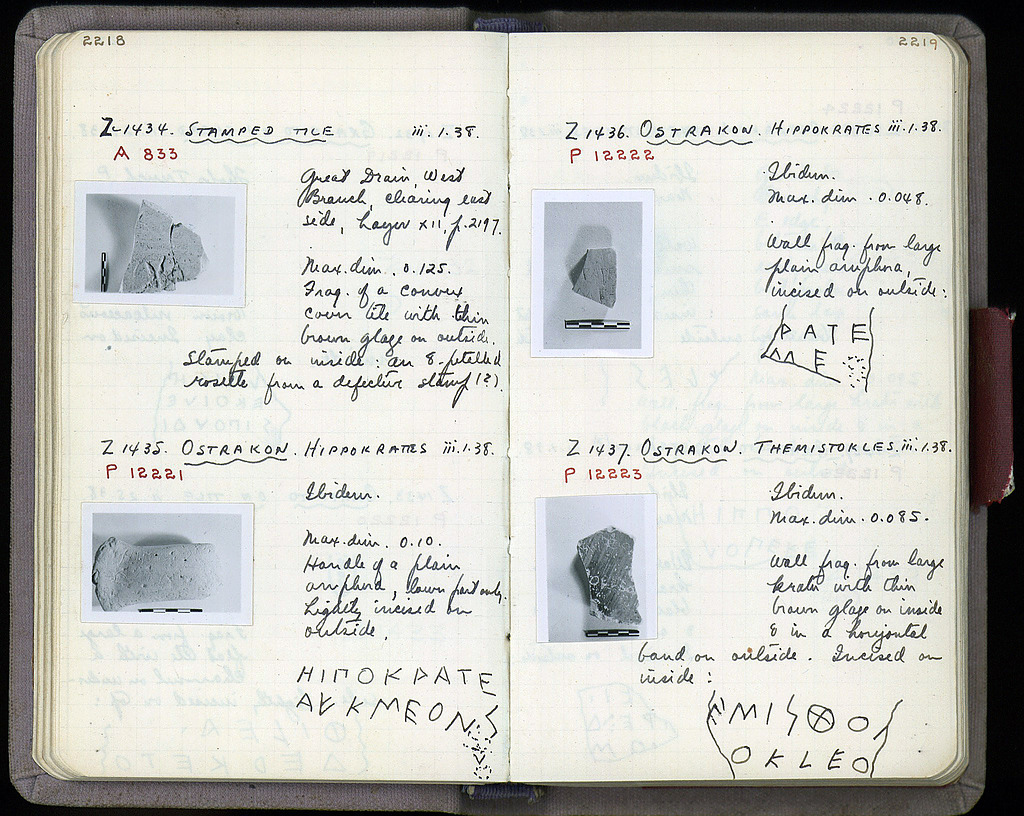 2218
Z-1434. STAMPED TILE iii.1.38.
A 833
Great Drain, West
Branch, clearing east
side, Layer XII, p.2197.
Max. dim. 0.125.
Frag. of a convex
cover tile with thin
brown glaze on outside.
Stamped on inside: an 8-petalled
rosette from a defective stamp (?).
Z 1435. OSTRAKON. HIPPOKRATES iii.1.38.
P 12221
Ibidem.
Max. dim. 0.10.
Handle of a plain
amphora, lower part only.
Lightly incised on
outside.
ΗΙΠΟΚΡΑΤΕ
ΑΛΚΜΕΟΝ
2219
Z 1436. OSTRAKON. HIPPOKRATES iii.1.38.
P 12222
Ibidem.
Max. dim. 0.048.
Wall frag. from large
plain amphora,
incised on outside:
ΡΑΤΕ
ΜΕ
Z 1437. OSTRAKON. THEMISTOKLES. iii.1.38.
P 12223
Ibidem.
Max. dim. 0.085.
Wall frag. from large
krater with thin
brown glaze on inside
& in a horizontal
band on outside. Incised on
inside:
ΕΜΙSΘΟ
ΟΚLΕΟ